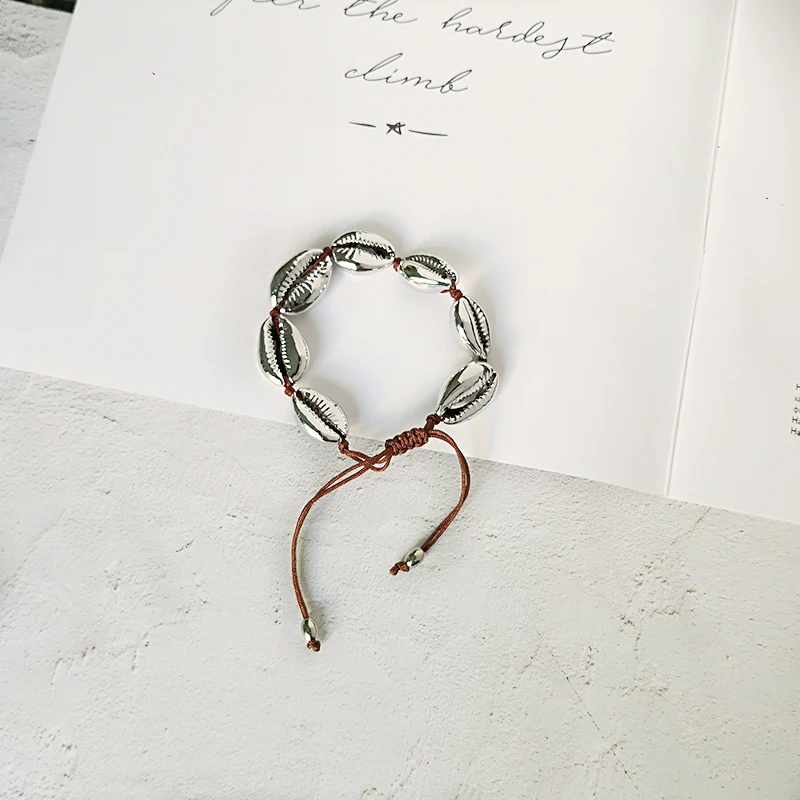 the hardest
climb